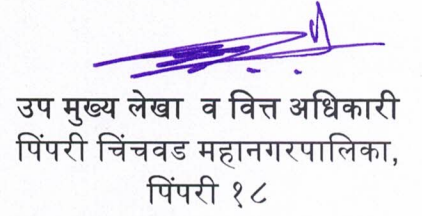 उप मुख्य लेखा व वित्त अधिकारी
पिंपरी चिंचवड महानगरपालिका,
पिंपरी १८